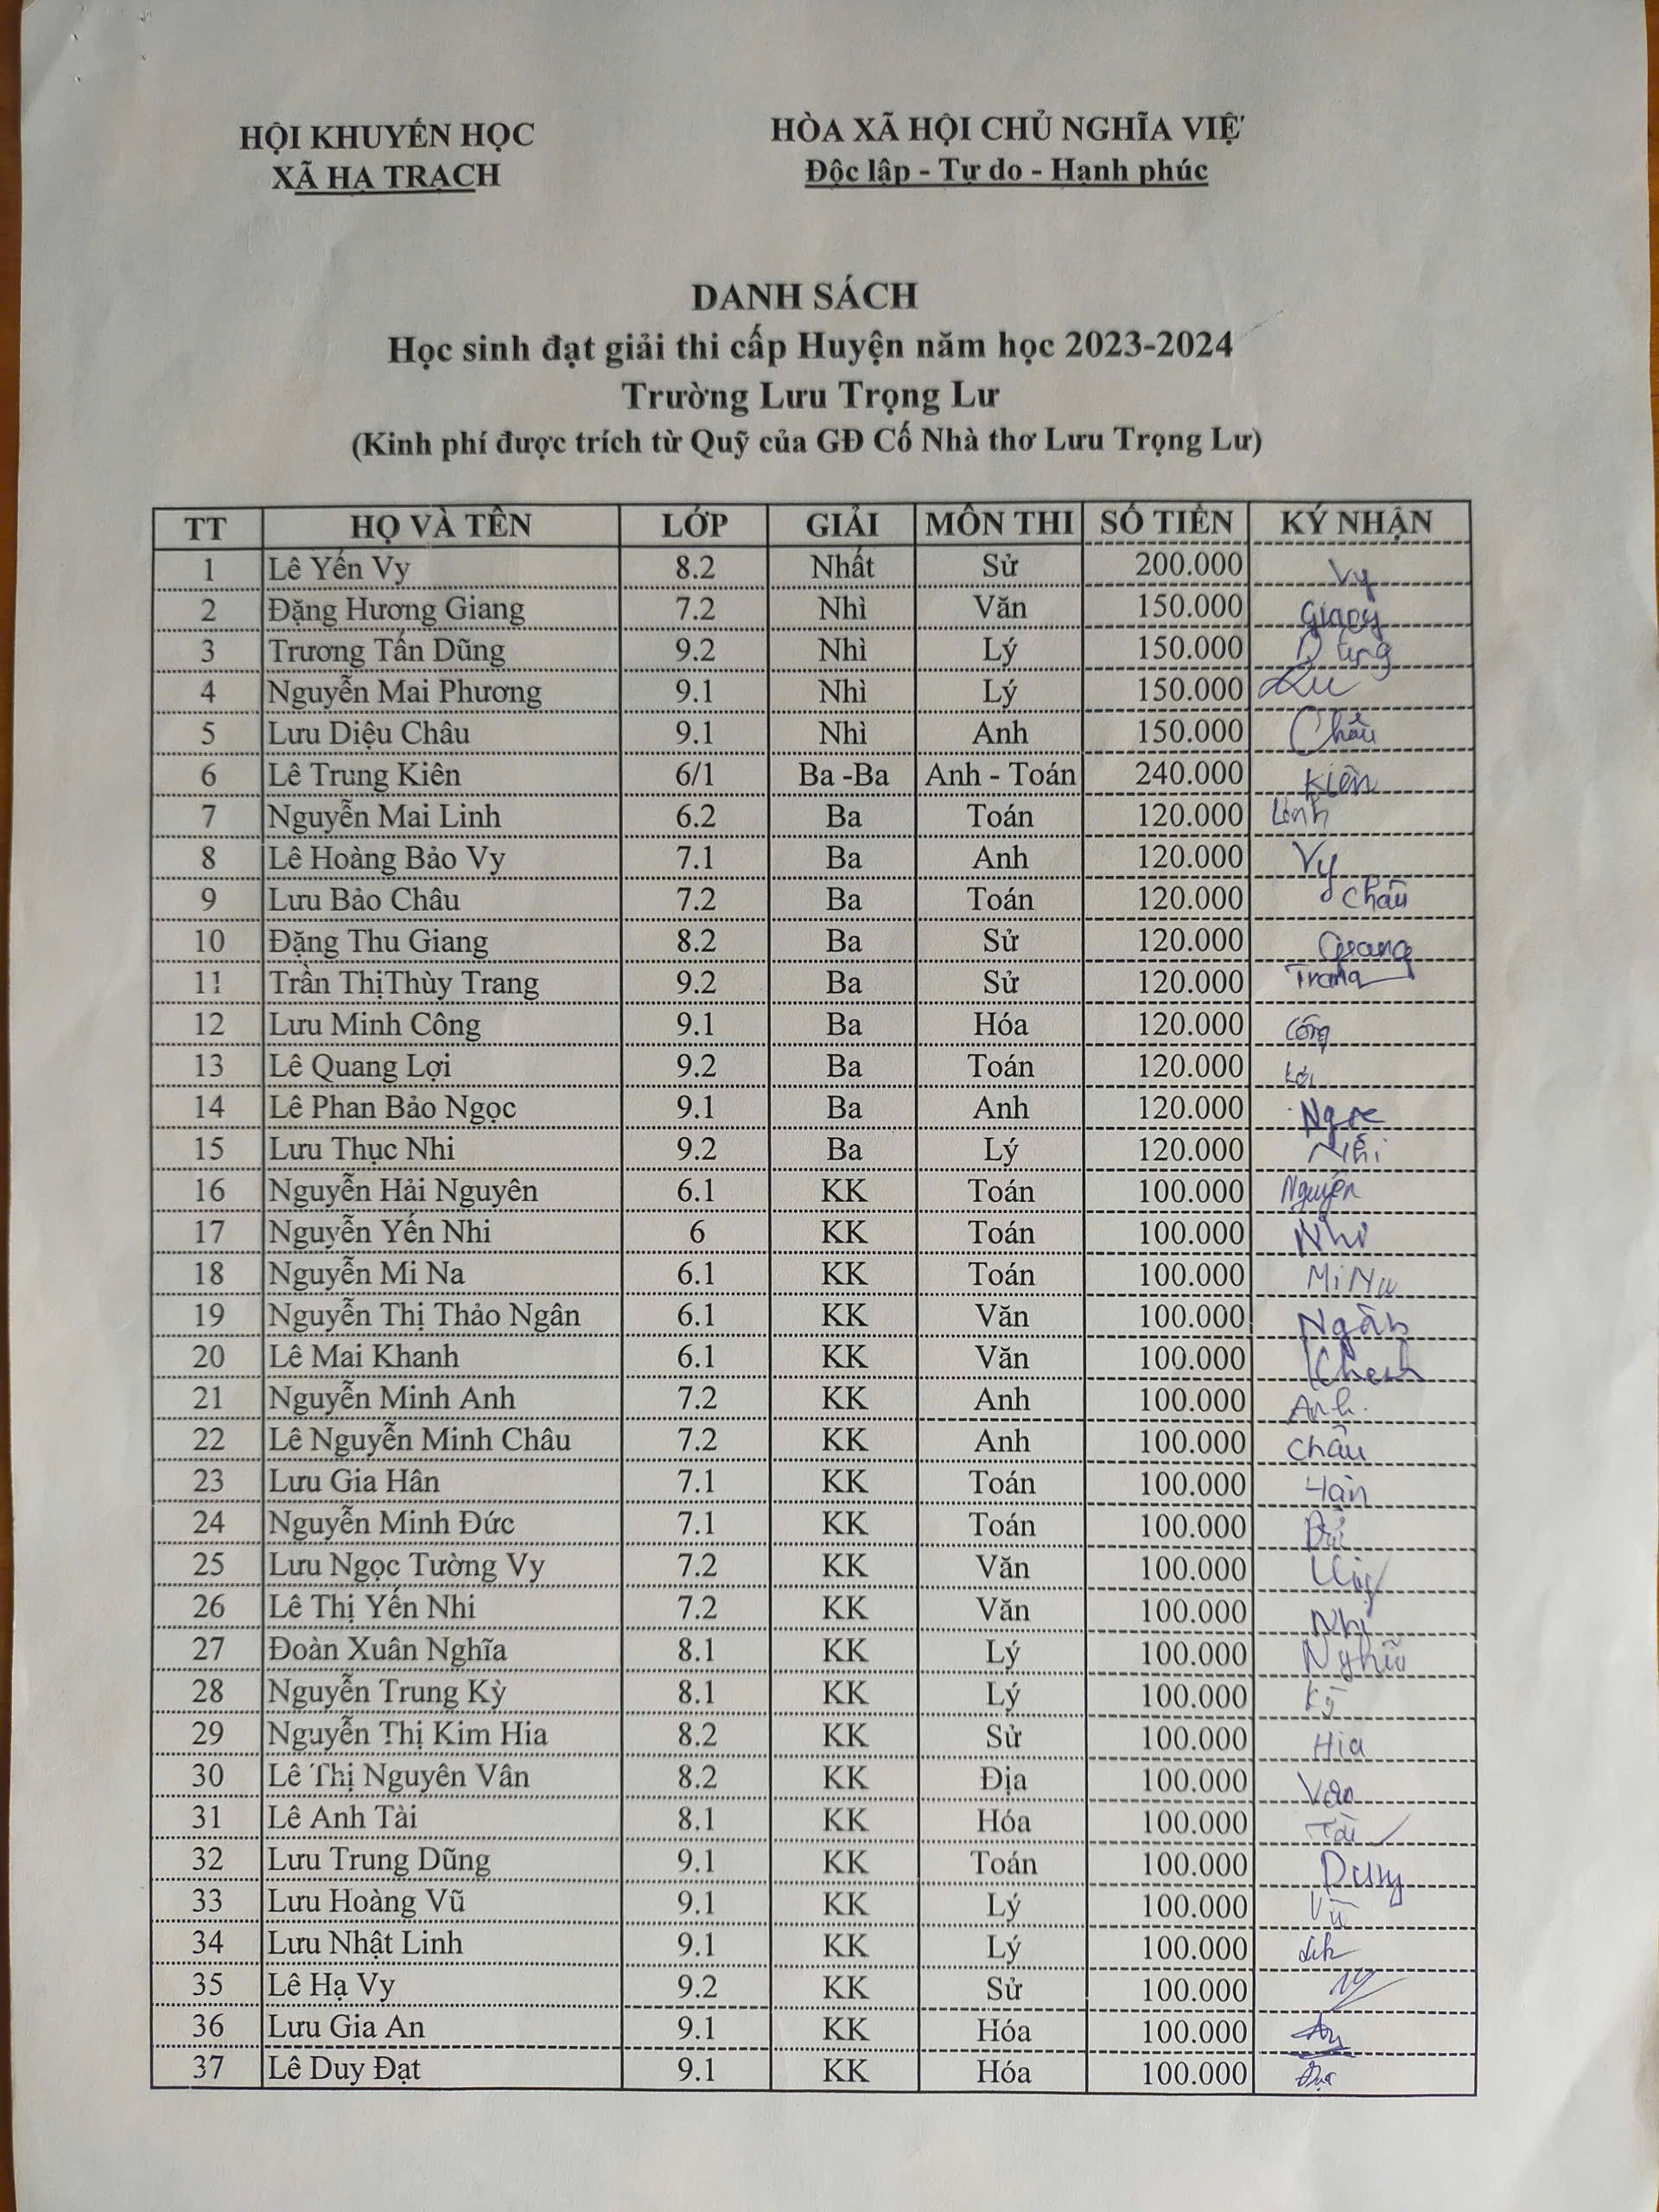 HỘI KHUYẾN HỌC
XÃ HẠ TRẠCH
HÒA XÃ HỘI CHỦ NGHĨA VIỆ
Độc lập - Tự do - Hạnh phúc
DANH SÁCH
Học sinh đạt giải thi cấp Huyện năm học 2023-2024
Trường Lưu Trọng Lư
(Kinh phí được trích từ Quỹ của GĐ Cố Nhà thơ Lưu Trọng Lư)
TT HỌ VÀ TÊN LỚP GIẢI MÔN THI SỐ TIỀN KÝ NHẬN
1 Lê Yến Vy 8.2 Nhất Sử 200.000 Vy
2 Đặng Hương Giang 7.2 Nhì Văn 150.000 Giang
3 Trương Tấn Dũng 9.2 Nhì Lý 150.000 Dũng
4 Nguyễn Mai Phương 9.1 Nhì Lý 150.000
5 Lưu Diệu Châu 9.1 Nhì Anh 150.000 Châu
6 Lê Trung Kiên 6/1 Ba -Ba Anh - Toán 240.000 Kiên
7 Nguyễn Mai Linh 6.2 Ba Toán 120.000 Linh
8 Lê Hoàng Bảo Vy 7.1 Ba Anh 120.000 Vy
9 Lưu Bảo Châu 7.2 Ba Toán 120.000 Châu
10 Đặng Thu Giang 8.2 Ba Sử 120.000 Giang
11 Trần ThịThùy Trang 9.2 Ba Sử 120.000 Trang
12 Lưu Minh Công 9.1 Ba Hóa 120.000 Công
13 Lê Quang Lợi 9.2 Ba Toán 120.000 Lợi
14 Lê Phan Bảo Ngọc 9.1 Ba Anh 120.000 Ngọc
15 Lưu Thục Nhi 9.2 Ba Lý 120.000 Nhi
16 Nguyễn Hải Nguyên 6.1 KK Toán 100.000 Nguyên
17 Nguyễn Yến Nhi 6 KK Toán 100.000 Nhi
18 Nguyễn Mi Na 6.1 KK Toán 100.000 Mi Na
19 Nguyễn Thị Thảo Ngân 6.1 KK Văn 100.000 Ngân
20 Lê Mai Khanh 6.1 KK Văn 100.000 Khanh
21 Nguyễn Minh Anh 7.2 KK Anh 100.000 Anh
22 Lê Nguyễn Minh Châu 7.2 KK Anh 100.000 Châu
23 Lưu Gia Hân 7.1 KK Toán 100.000 Hân
24 Nguyễn Minh Đức 7.1 KK Toán 100.000
25 Lưu Ngọc Tường Vy 7.2 KK Văn 100.000
26 Lê Thị Yến Nhi 7.2 KK Văn 100.000 Nhi
27 Đoàn Xuân Nghĩa 8.1 KK Lý 100.000 Nghĩa
28 Nguyễn Trung Kỳ 8.1 KK Lý 100.000 Kỳ
29 Nguyễn Thị Kim Hia 8.2 KK Sử 100.000 Hia
30 Lê Thị Nguyên Vân 8.2 KK Địa 100.000 Vân
31 Lê Anh Tài 8.1 KK Hóa 100.000 Tài
32 Lưu Trung Dũng 9.1 KK Toán 100.000 Dung
33 Lưu Hoàng Vũ 9.1 KK Lý 100.000 Vũ
34 Lưu Nhật Linh 9.1 KK Lý 100.000
35 Lê Hạ Vy 9.2 KK Sử 100.000
36 Lưu Gia An 9.1 KK Hóa 100.000
37 Lê Duy Đạt 9.1 KK Hóa 100.000